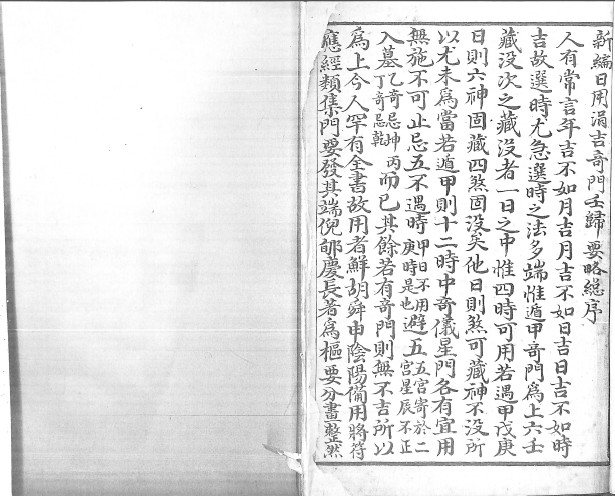 新編日用涓吉奇門五歸要略総序
人有常言年吉不如月吉月吉不如日吉日吉不如時
吉故選時尤急選時之法多端惟遁甲奇門為上六壬
藏没次之藏没者一日之中惟四時可用若遇甲戊庚
日則六神固藏四煞固没矣他日則煞可藏神不没所
以尤未為當若遁甲則十二時中奇儀星門各有宜用
無施不可止忌五不遇時甲日不用庚時是也避五五宮寄於二宮星辰不正
入墓乙奇忌坤丙丁奇忌乾而已其餘若有奇門則無不吉所以
為上今人罕有全書故用者鮮胡舜申陰陽備用將符
應經類集門要發其端倪郇慶長著為樞要分書整然